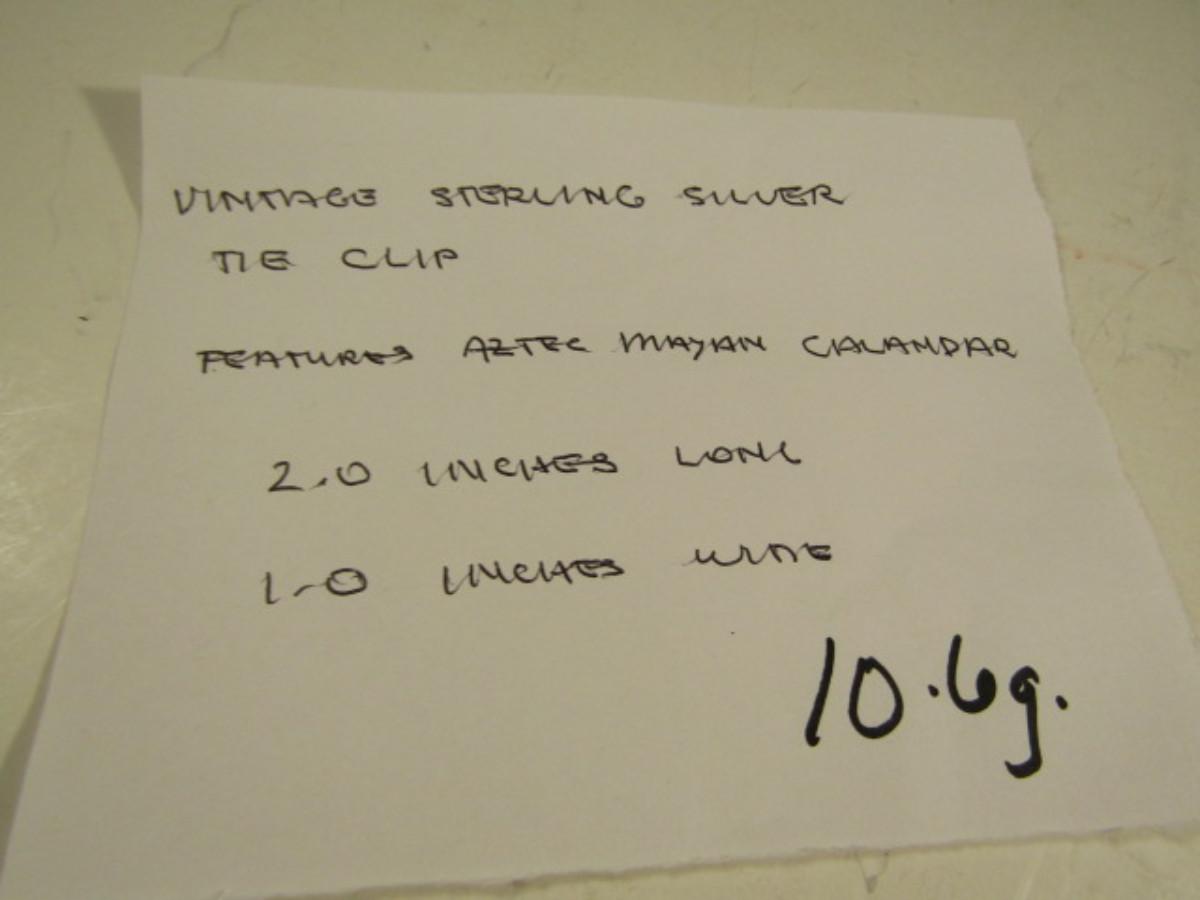 VINTAGE STERLING SILVER
TIE CLIP
FEATURES AZTEC MAYAN CALANDAR
2.0 INCHES LONG
1.0 INCHES WIDE
10.6g.